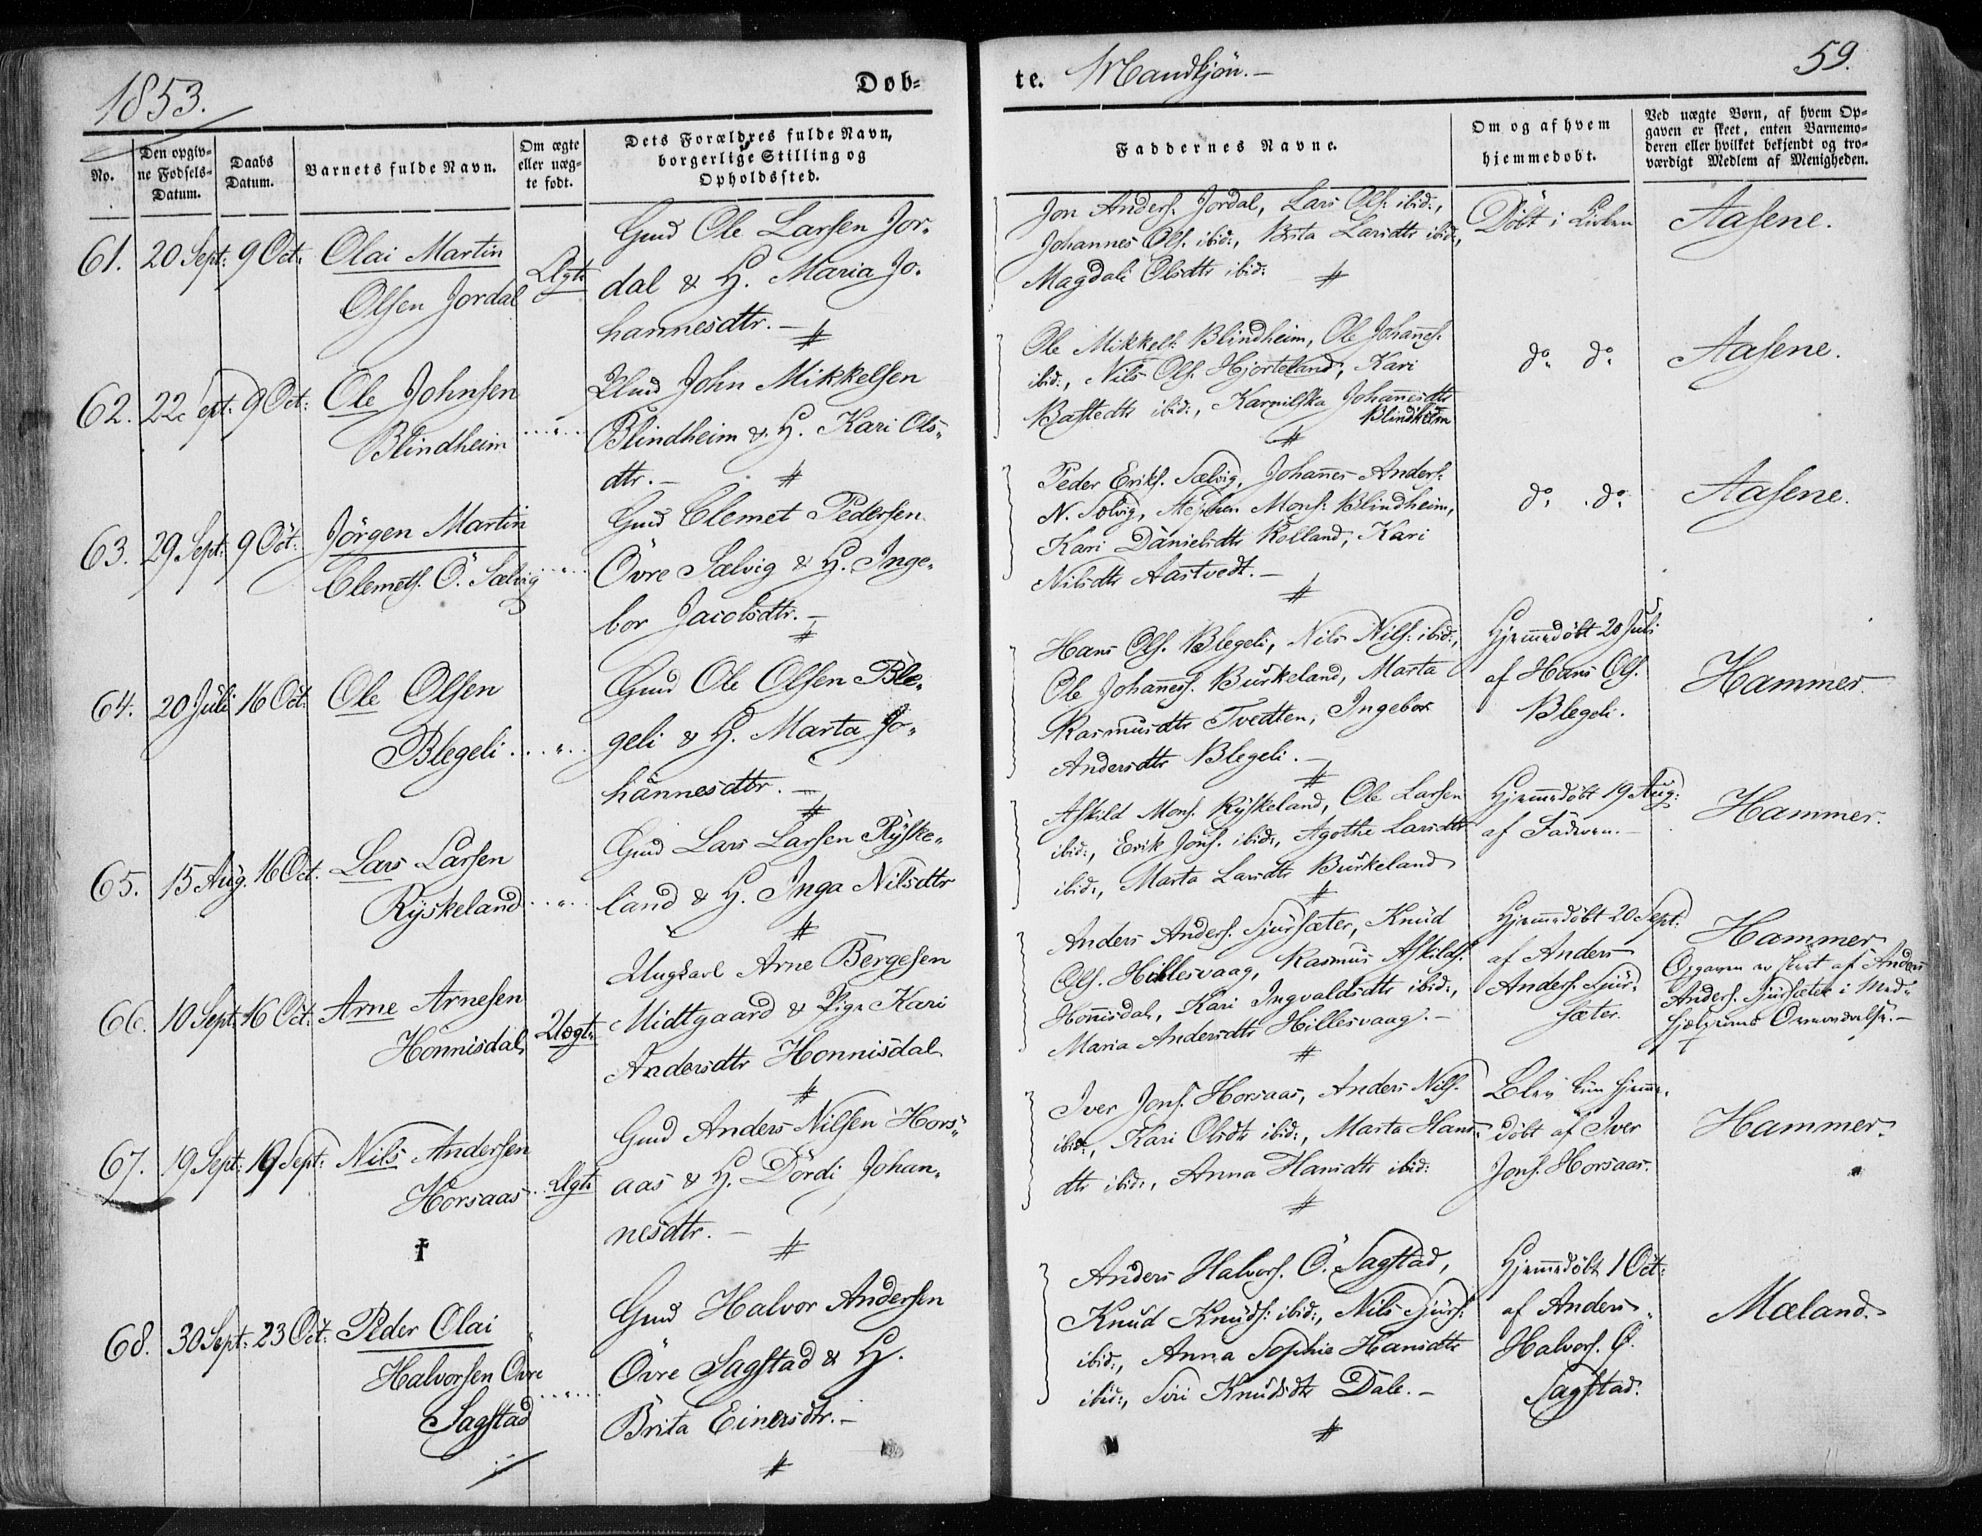 1853.
Døb-
No.
Den opgiv-
ne Fødsels-
Datum.
Daabs
Datum.
Barnets fulde Navn.
Om ægte
eller uæg-
te født.
Dets Forældres fulde Navn,
borgerlige Stilling og
Opholdssted.
61. 20 Sept: 9 Oct: Olai Martin
Olsen Jordal
Ægte
Gmd Ole Larsen Jor-
dal & H. Maria Jo-
hannesdtr. -
62. 22 Sept: 9 Oct: Ole Johnsen
Blindheim
..."...
John Mikkelsen
Blindheim & H. Kari Ols-
dtr. -
63. 29 Sept: 9 Oct: Jörgen Martin
Clemets. Ö. Sælvig
..."...
Gmd Clemet Pedersen
Övre Sælvig & H. Inge-
bor Jacobsdtr. -
64. 20 Juli 16 Oct: Ole Olsen
Blegeli
..."...
Gmd Ole Olsen Ble-
geli & H. Marta Jo-
hannesdtr. -
65. 15 Aug. 16 Oct. Lars Larsen
Ryskeland
..."...
Gmd Lars Larsen Ryske-
land & H. Inga Nilsdtr
66. 10 Sept: 16 Oct: Arne Arnesen
Honnisdal
Uægte
Ungkarl Arne Bergesen
Midtgaard & Pige Kari
Andersdtr Honnisdal
67. 19 Sept: 19 Sept: Nils Andersen
Horsaas
†
Ægte
Gmd Anders Nilsen Hors-
aas & H. Dördi Johan-
nesdtr. -
68. 30 Sept: 23 Oct: Peder Olai
Halvorsen Övre
Sagstad
..."...
Gmd Halvor Andersen
Övre Sagstad & H.
Brita Einersdtr. -
te. Mandkjön. -
59.
Faddernes Navne.
Om og af hvem
hjemmedøbt.
Ved uægte Børn, af hvem Op-
gaven er skeet, enten Barnemo-
deren eller hvilket bekjendt og tro-
værdigt Medlem af Menigheden.
Jon Anders. Jordal, Lars Ols. ibid:,
Johannes Ols. ibid:, Brita Larsdtr ibid:,
Magdali Olsdtr ibid:
Döbt i Kirken
Aasene.
Ole Mikkels: Blindheim, Ole Johanes.
ibid:, Nils Ols. Hjorteland, Kari
Bastedtr ibid:, Karnilska Johanesdtr
Blindheim
do do
Aasene.
Peder Eriks. Sælvig, Johanes Anders:
N. Sælvig, Stephen Mons. Blindheim,
Kari Danielsdtr Rolland, Kari
Nilsdtr Aastvedt. -
do do
Aasene.
Hans Ols. Blegeli, Nils Nils: ibid:,
Ole Johaness. Burkeland, Marta
Rasmusdtr Tvedten, Ingebor
Andersdtr Blegeli. -
Hjemmedöbt 20 Juli
af Hans Ols.
Blegeli.
Hammer.
Askild Mons. Ryskeland, Ole Larsen
ibid:, Erik Jons. ibid:, Agothe Larsdtr
ibid:, Marta Larsdtr Burkeland
Hjemmedöbt 19 Aug:
af Faderen. -
Hammer.
Anders Anders. Sjursæter, Knud
Ols. Hillesvaag, Rasmus Askilds.
Honisdal, Kari Ingvaldsdtr ibid:,
Maria Andersdtr Hillesvaag. -
Hjemmedöbt 20 Sept:
af Anders
Anders. Sjur-
sæter.
Hammer
Opgaven er skeet af Anders
Anders. Sjursæter i Med-
hjelpernes Overværelse. -
Iver Jons. Horsaas, Anders Nils.
ibid:, Kari Olsdtr ibid:, Marta Hans-
dtr ibid:, Anna Hansdtr ibid:
Blev kun hjemme-
döbt af Iver
Jons. Horsaas.
Hammer.
Anders Halvors. Ö. Sagstad,
Knud Knuds: ibid:, Nils Sjurs:
ibid:, Anna Sophie Hansdtr
ibid:, Siri Knudsdtr Dale. -
Hjemmedöbt 1 Oct:
af Anders
Halvors. Ö.
Sagstad.
Mæland.